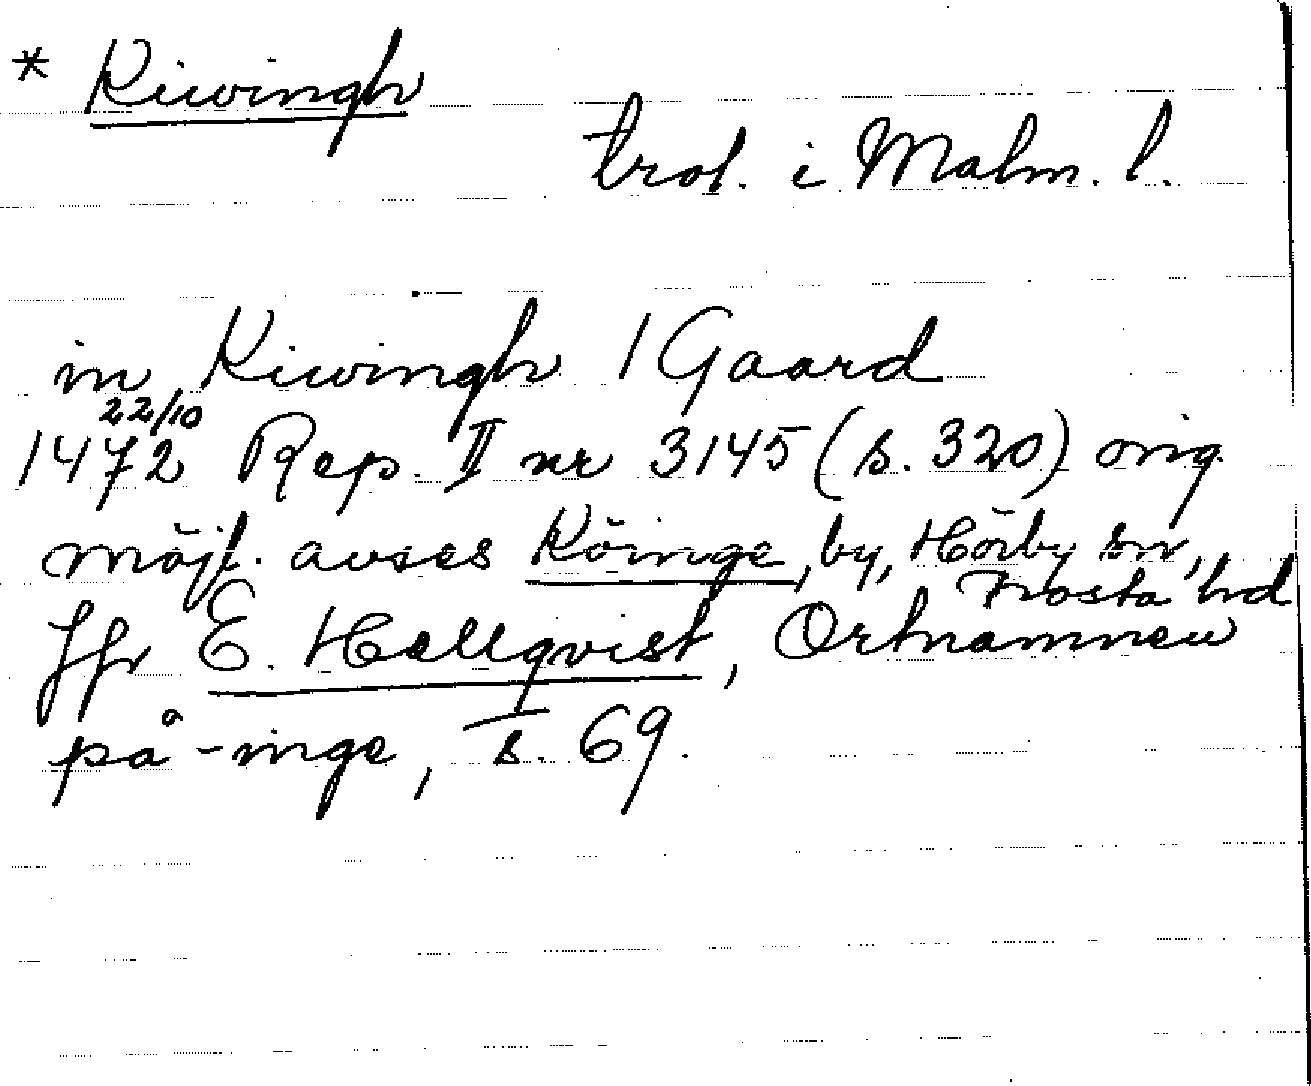 * Kiwingh
trol. i Malm. l.
in Kiwingh 1 Gaard
22/10
1472 Rep. II nr 3145 (s. 320) orig
möjl. avses Köinge, by, Hörby sn,
Frosta hd
Jfr E. Hellqvist, Ortnamnen
på -inge, s. 69.